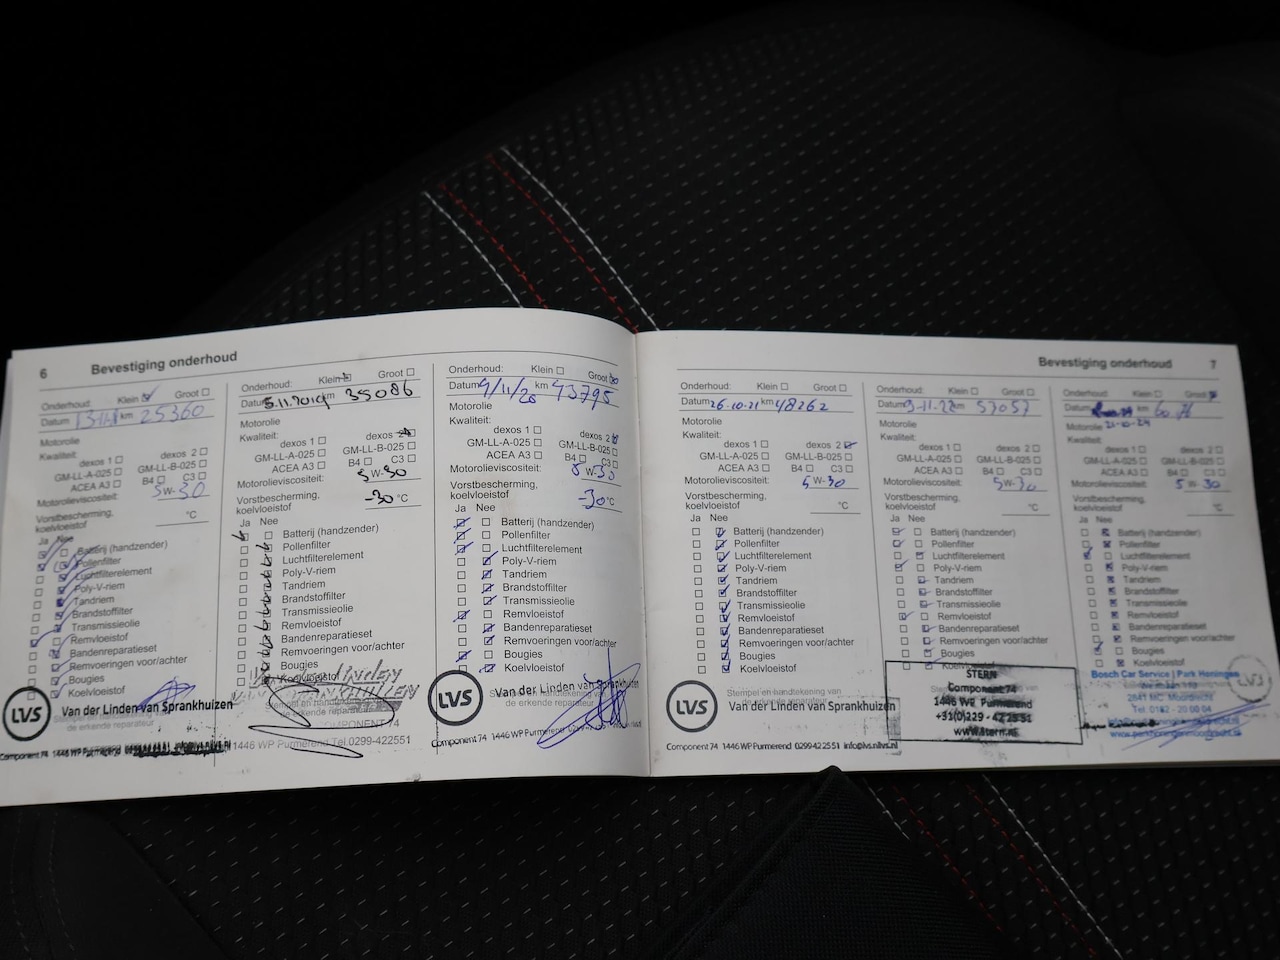 6 Bevestiging onderhoud
Onderhoud: Klein Groot
Datum km 25360
Motorolie
Kwaliteit:
dexos 1 dexos 2
GM-LL-A-025 GM-LL-B-025
ACEA A3 B4 C3
Motorolieviscositeit: 5W-30
Vorstbescherming,
koelvloeistof °C
Ja Nee
Batterij (handzender)
Pollenfilter
Luchtfilterelement
Poly-V-riem
Tandriem
Brandstoffilter
Transmissieolie
Remvloeistof
Bandenreparatieset
Remvoeringen voor/achter
Bougies
Koelvloeistof
LVS Van der Linden van Sprankhuizen
Component 74 1446 WP Purmerend
Onderhoud: Klein Groot
Datum 5.11.2019 km 35086
Motorolie
Kwaliteit:
dexos 1 dexos 2
GM-LL-A-025 GM-LL-B-025
ACEA A3 B4 C3
Motorolieviscositeit: 5W-30
Vorstbescherming,
koelvloeistof -30 °C
Ja Nee
Batterij (handzender)
Pollenfilter
Luchtfilterelement
Poly-V-riem
Tandriem
Brandstoffilter
Transmissieolie
Remvloeistof
Bandenreparatieset
Remvoeringen voor/achter
Bougies
Koelvloeistof
1446 WP Purmerend Tel 0299-422551
Onderhoud: Klein Groot
Datum 4/11/20 km 43795
Motorolie
Kwaliteit:
dexos 1 dexos 2
GM-LL-A-025 GM-LL-B-025
ACEA A3 B4 C3
Motorolieviscositeit: 5W-30
Vorstbescherming,
koelvloeistof -30 °C
Ja Nee
Batterij (handzender)
Pollenfilter
Luchtfilterelement
Poly-V-riem
Tandriem
Brandstoffilter
Transmissieolie
Remvloeistof
Bandenreparatieset
Remvoeringen voor/achter
Bougies
Koelvloeistof
LVS Van der Linden van Sprankhuizen
de erkende reparateur
Component 74 1446 WP Purmerend
Bevestiging onderhoud 7
Onderhoud: Klein Groot
Datum 26.10.21 km 48262
Motorolie
Kwaliteit:
dexos 1 dexos 2
GM-LL-A-025 GM-LL-B-025
ACEA A3 B4 C3
Motorolieviscositeit: 5W-30
Vorstbescherming,
koelvloeistof °C
Ja Nee
Batterij (handzender)
Pollenfilter
Luchtfilterelement
Poly-V-riem
Tandriem
Brandstoffilter
Transmissieolie
Remvloeistof
Bandenreparatieset
Remvoeringen voor/achter
Bougies
Koelvloeistof
Stempel en handtekening van
LVS Van der Linden van Sprankhuizen
Component 74 1446 WP Purmerend 0299422551 info@lvs.nl
Onderhoud: Klein Groot
Datum km 53057
Motorolie
Kwaliteit:
dexos 1 dexos 2
GM-LL-A-025 GM-LL-B-025
ACEA A3 B4 C3
Motorolieviscositeit: 5W-30
Vorstbescherming,
koelvloeistof °C
Ja Nee
Batterij (handzender)
Pollenfilter
Luchtfilterelement
Poly-V-riem
Tandriem
Brandstoffilter
Transmissieolie
Remvloeistof
Bandenreparatieset
Remvoeringen voor/achter
Bougies
Koelvloeistof
STERN
Component 74
1446 WP Purmerend
+31(0)229 - 42 25 51
www.stern.nl
Onderhoud: Klein Groot
Datum km
Motorolie 21-10-24
Kwaliteit:
dexos 1 dexos 2
GM-LL-A-025 GM-LL-B-025
ACEA A3 B4 C3
Motorolieviscositeit: 5W-30
Vorstbescherming,
koelvloeistof °C
Ja Nee
Batterij (handzender)
Pollenfilter
Luchtfilterelement
Poly-V-riem
Tandriem
Brandstoffilter
Transmissieolie
Remvloeistof
Bandenreparatieset
Remvoeringen voor/achter
Bougies
Koelvloeistof
Bosch Car Service | Park Honingen
2841 MC Moordrecht
Tel. 0182 - 20 00 04